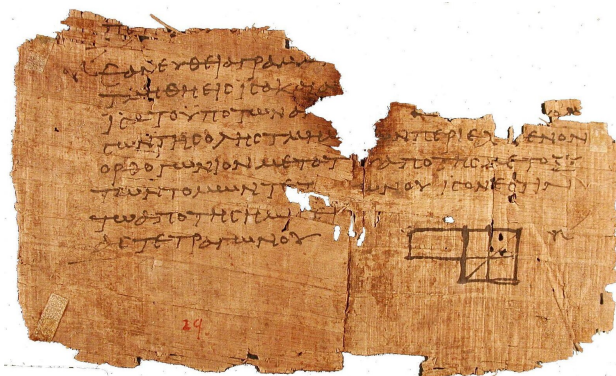 ΕΑΝ ΕΥΘΕΙΑ ΓΡΑΜΜ
ΤΜΗΘΗ ΕΙΣ ΙΣΑ ΚΑΙ
ΙΣΑ ΤΟ ΥΠΟ ΤΩΝ Α
ΣΩΝ ΤΗΣ ΟΛΗΣ ΤΜΗΜ ΩΝ ΠΕΡΙΕΧΟΜΕΝΟΝ
ΟΡΘΟΓΩΝΙΟΝ ΜΕΤΑ ΤΟΥ ΑΠΟ ΤΗΣ ΜΕΤΟΞΥ
ΤΩΝ ΤΟΜΩΝ ΤΕ ΩΝΟΥ ΙΣΟΝ ΕΣΤΙΝ
ΤΩ ΑΠΟ ΤΗΣ ΗΜΙΣ
ΑΣ ΤΕΤΡΑΓΩΝΟΥ
29.